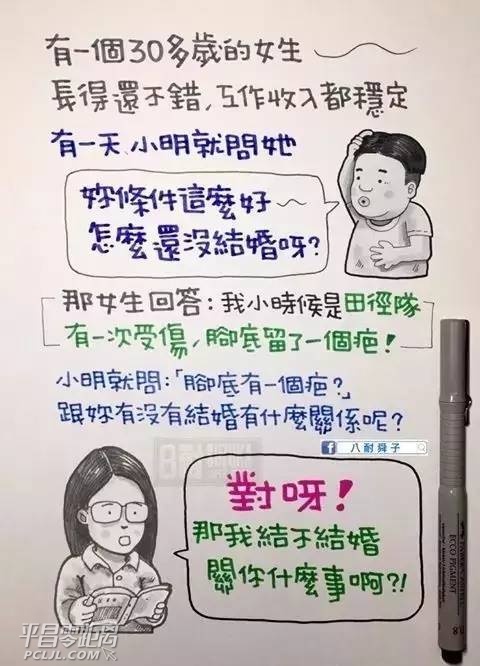 有一個30多歲的女生
長得還不錯,工作收入都穩定
有一天、小明就問她
妳條件這麼好
怎麼還沒結婚呀?
那女生回答:我小時候是田徑隊
有一次受傷,腳底留了一個疤!
小明就問:「腳底有一個疤?」
跟妳有沒有結婚有什麼關係呢?
f 八耐舜子
對呀!
那我結不結婚
關你什麼事啊?!
ECCO PIGMENT
0.8
平昌零距离
PCLJL.COM